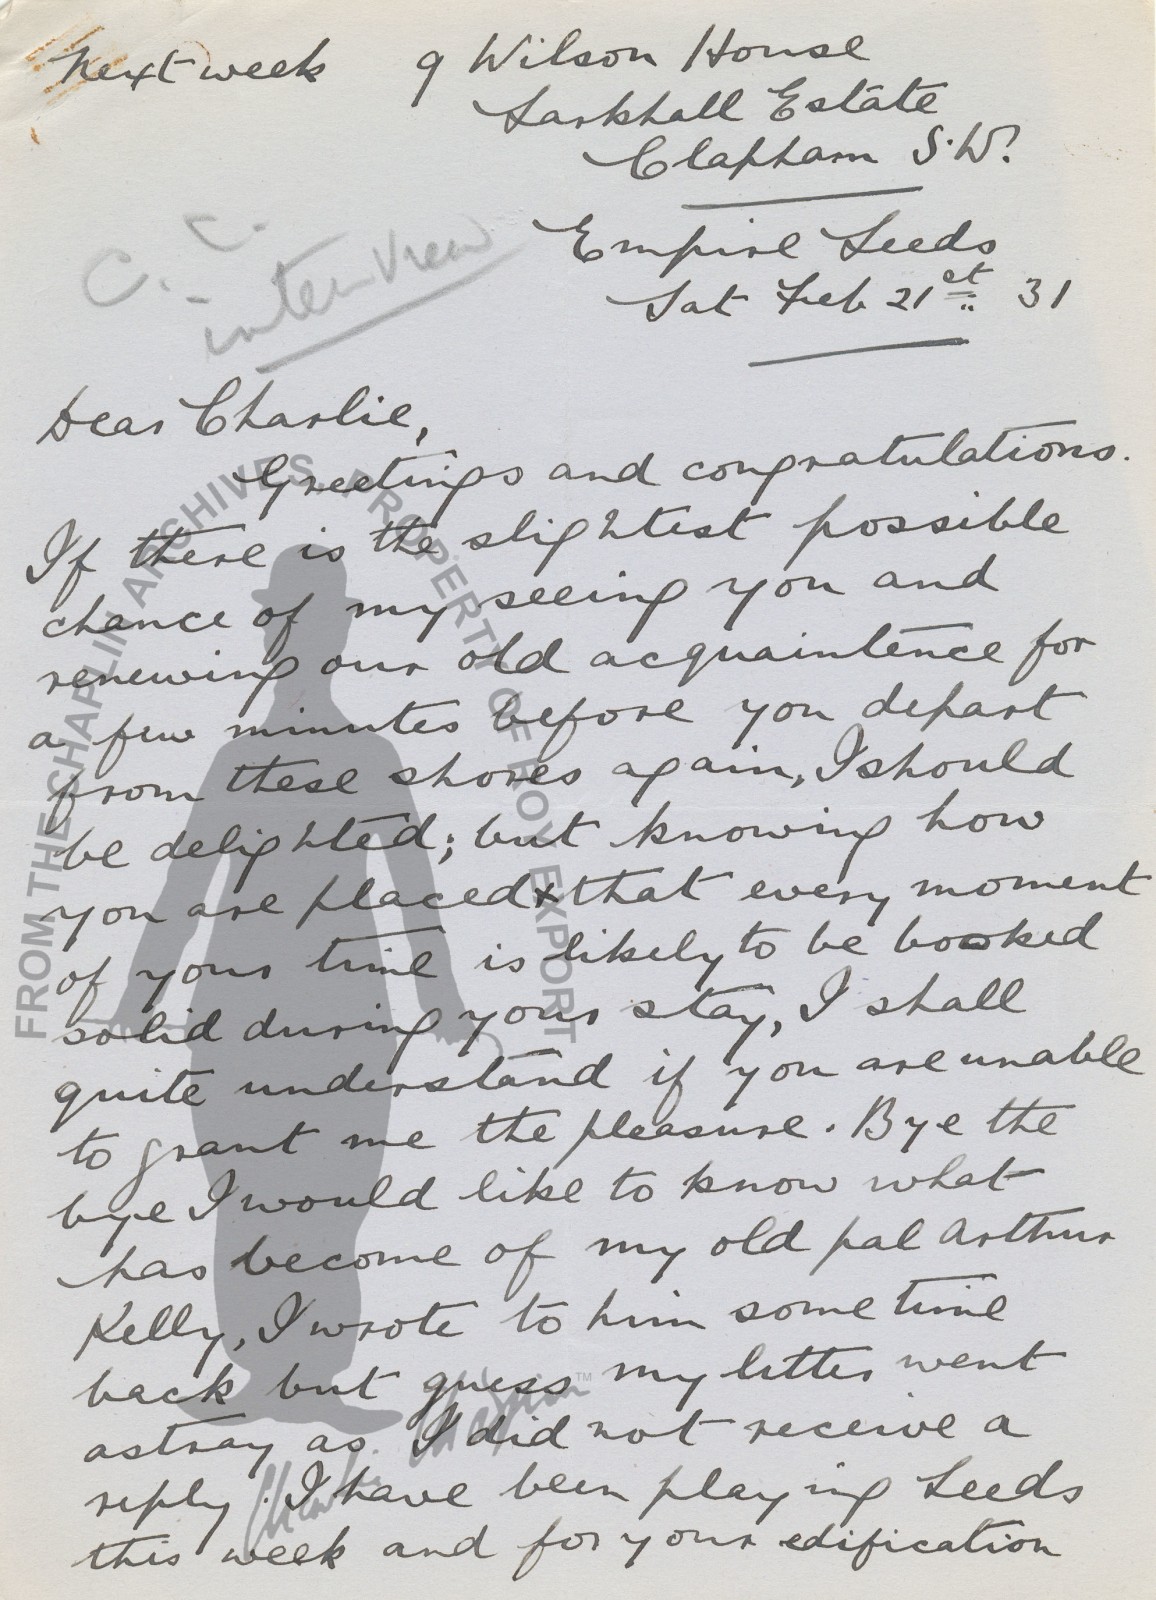 Next week 9 Wilson House
Larkhall Estate
Clapham S.W.
Empire Leeds
Sat Feb 21st 31
C. C.
- interview
Dear Charlie,
Greetings and congratulations.
If there is the slightest possible
chance of my seeing you and
renewing our old acquaintence for
a few minutes before you depart
from these shores again, I should
be delighted; but knowing how
you are placed & that every moment
of your time is likely to be booked
solid during your stay, I shall
quite understand if you are unable
to grant me the pleasure. Bye the
bye I would like to know what
has become of my old pal Arthur
Kelly, I wrote to him some time
back but guess my letter went
astray as I did not receive a
reply. I have been playing Leeds
this week and for your edification
FROM THE CHAPLIN ARCHIVES. PROPERTY OF ROY EXPORT
Charlie Chaplin TM